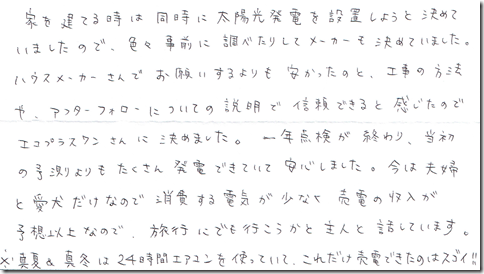 家を建てる時は同時に太陽光発電を設置しようと決めて
いましたので、色々事前に調べたりしてメーカーも決めていました。
ハウスメーカーさんでお願いするよりも安かったのと、工事の方法
や、アフターフォローについての説明で信頼できると感じたので
エコプラスワンさんに決めました。一年点検が終わり、当初
の予測よりもたくさん発電できていて安心しました。今は夫婦
と愛犬だけなので消費する電気が少なく売電の収入が
予想以上なので、旅行にでも行こうかと主人と話しています。
※真夏&真冬は24時間エアコンを使っていて、これだけ売電できたのはスゴイ!!